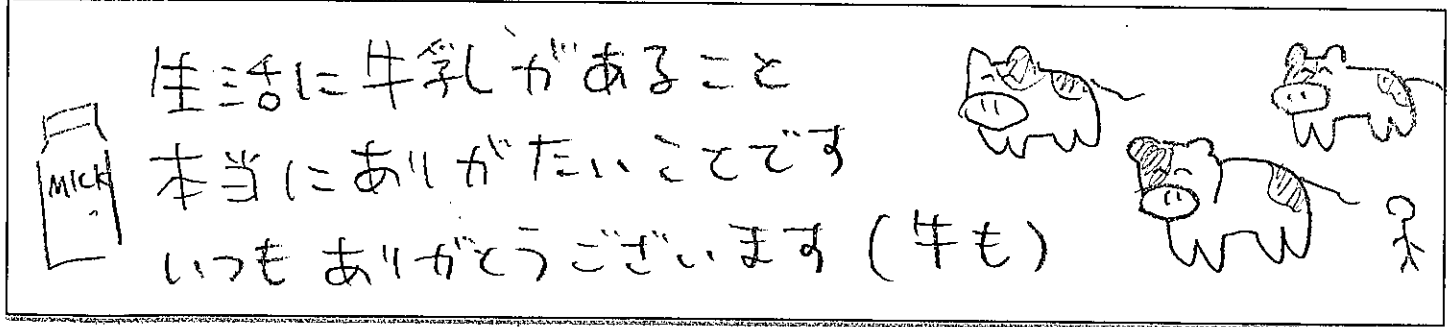 生活に牛乳があること
本当にありがたいことです
いつもありがとうございます(牛も)
MICK